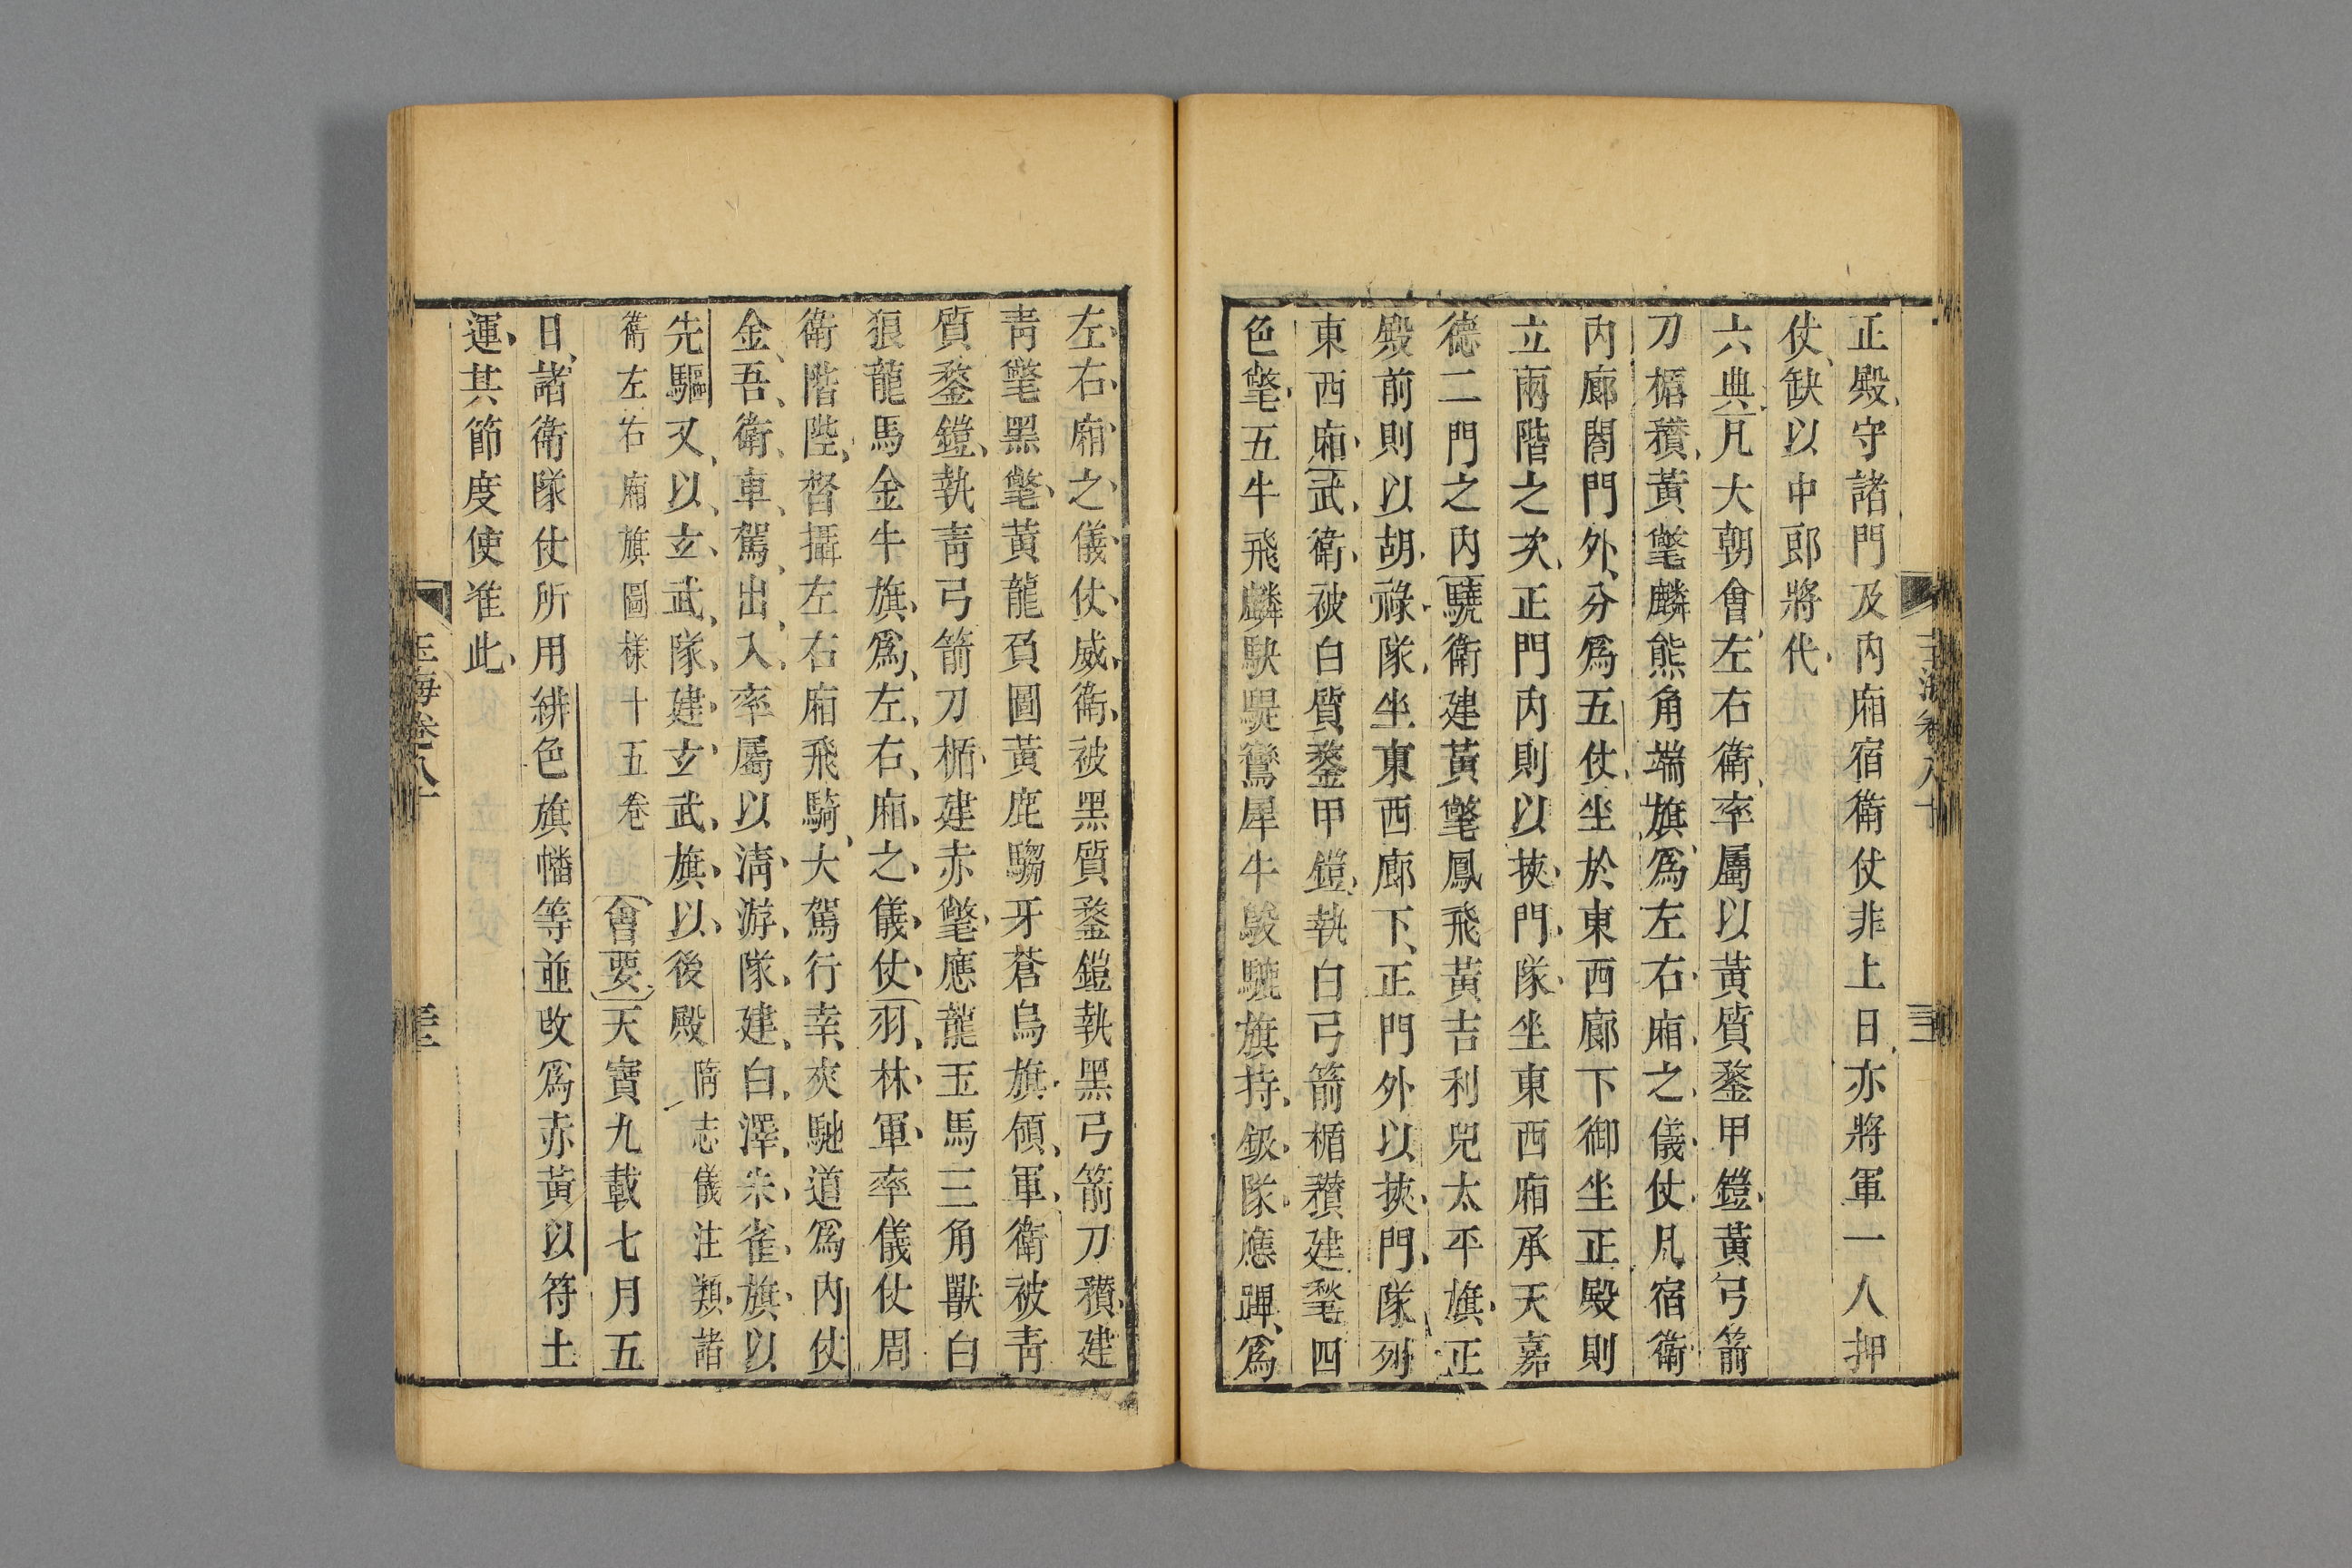 正殿守諸門及內廂宿衛仗非上日亦將軍一人押
仗缺以中郎將代
六典凡大朝會左右衛率屬以黃質鍪甲鎧黃弓箭
刀楯穳黃氅麟熊角端旗爲左右廂之儀仗凡宿衛
內廊閤門外分爲五仗坐於東西廊下御坐正殿則
立兩階之次正門內則以挾門隊坐東西廂承天嘉
德二門之內驍衛建黃氅鳳飛黃吉利兕太平旗正
殿前則以胡祿隊坐東西廊下正門外以挾門隊列
東西廂武衛被白質鍪甲鎧執白弓箭楯穳建氅四
色氅五牛飛麟駃騠鸞犀牛駿騼旗持鈒隊應蹕爲
玉海卷八十
左右廂之儀仗威衛被黑質鍪鎧執黑弓箭刀穳建
靑氅黑氅黃龍負圖黃鹿騶牙蒼烏旗領軍衛被靑
質鍪鎧執靑弓箭刀楯建赤氅應龍玉馬三角獸白
狼龍馬金牛旗爲左右廂之儀仗羽林軍率儀仗周
衛階陛督攝左右廂飛騎大駕行幸夾馳道爲內仗
金吾衛車駕出入率屬以淸游隊建白澤朱雀旗以
先驅又以玄武隊建玄武旗以後殿隋志儀注類諸
衛左右廂旗圖樣十五卷會要天寶九載七月五
日諸衛隊仗所用緋色旗幡等並改爲赤黃以符土
運其節度使准此
玉海卷八十